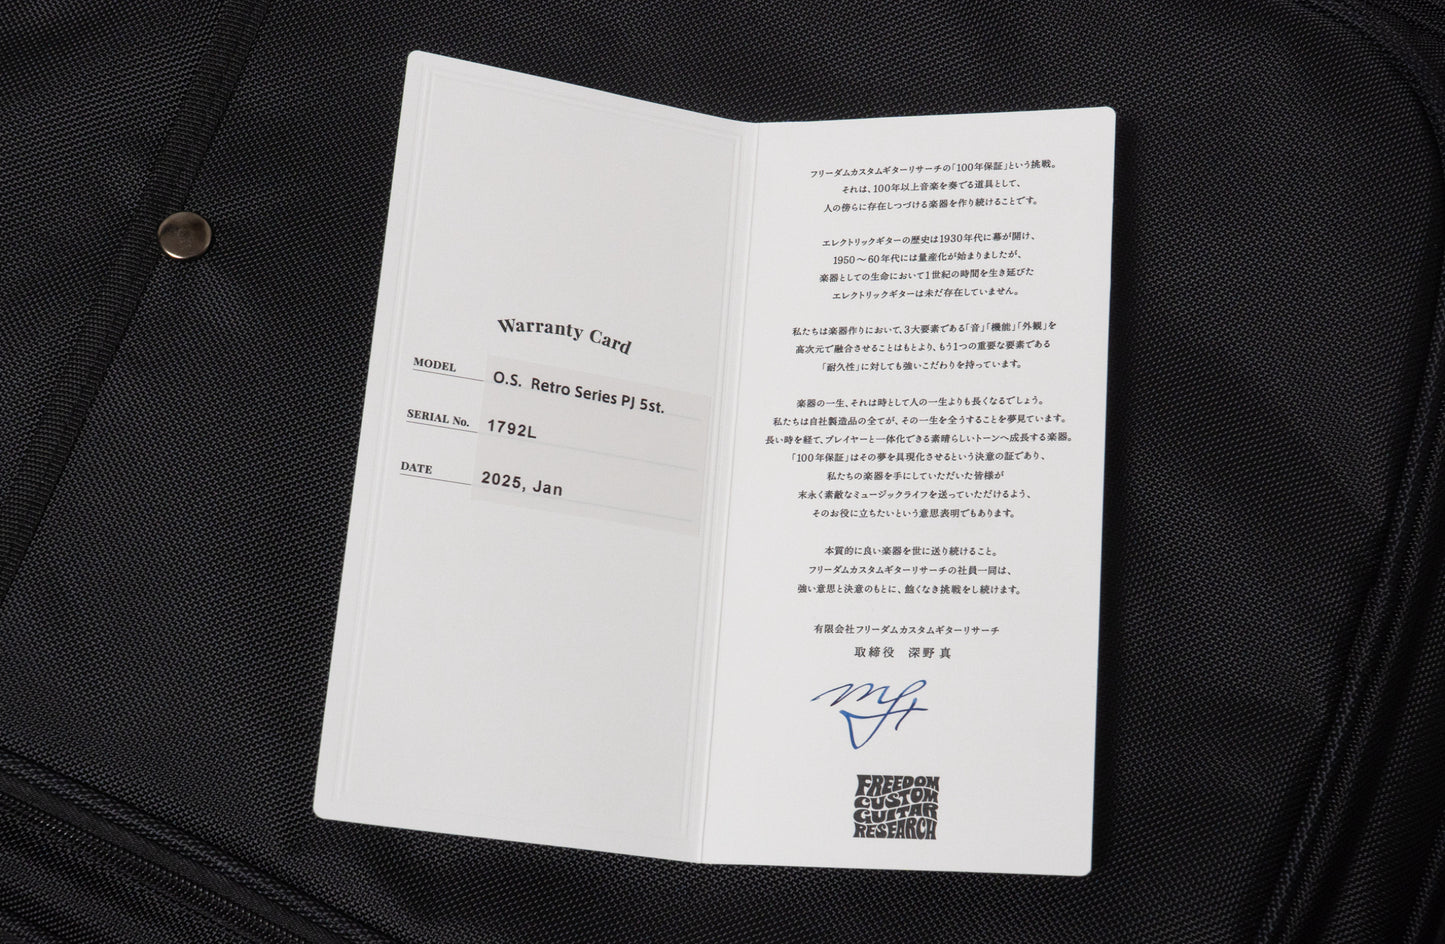 Warranty Card
MODEL O.S. Retro Series PJ 5st.
SERIAL No. 1792L
DATE 2025, Jan
フリーダムカスタムギターリサーチの「100年保証」という挑戦。
それは、100年以上音楽を奏でる道具として、
人の傍らに存在しつづける楽器を作り続けることです。
エレクトリックギターの歴史は1930年代に幕が開け、
1950〜60年代には量産化が始まりましたが、
楽器としての生命において1世紀の時間を生き延びた
エレクトリックギターは未だ存在していません。
私たちは楽器作りにおいて、3大要素である「音」「機能」「外観」を
高次元で融合させることはもとより、もう1つの重要な要素である
「耐久性」に対しても強いこだわりを持っています。
楽器の一生、それは時として人の一生よりも長くなるでしょう。
私たちは自社製造品の全てが、その一生を全うすることを夢見ています。
長い時を経て、プレイヤーと一体化できる素晴らしいトーンへ成長する楽器。
「100年保証」はその夢を具現化させるという決意の証であり、
私たちの楽器を手にしていただいた皆様が
末永く素敵なミュージックライフを送っていただけるよう、
そのお役に立ちたいという意思表明でもあります。
本質的に良い楽器を世に送り続けること。
フリーダムカスタムギターリサーチの社員一同は、
強い意思と決意のもとに、飽くなき挑戦をし続けます。
有限会社フリーダムカスタムギターリサーチ
取締役　深野 真
FREEDOM
CUSTOM
GUITAR
RESEARCH